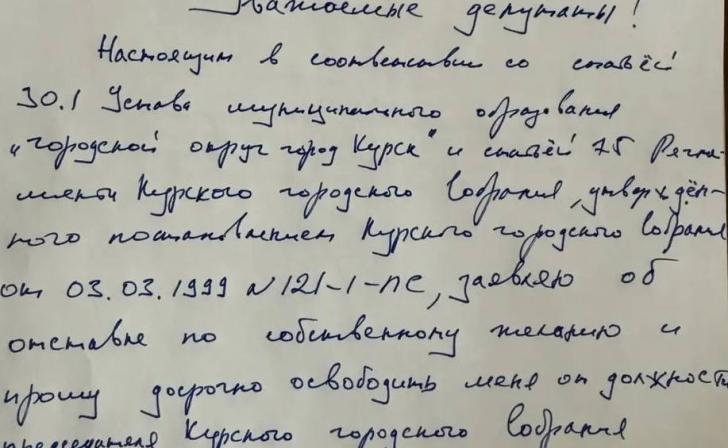 Уважаемые депутаты!
Настоящим в соответствии со статьёй
30.1 Устава муниципального образования
„городской округ город Курск" и статьёй 75 Регла-
мента Курского городского Собрания, утверждён-
ного постановлением Курского городского Собрания
от 03.03.1999 № 121-1-ПС, заявляю об
отставке по собственному желанию и
прошу досрочно освободить меня от должности
председателя Курского городского Собрания